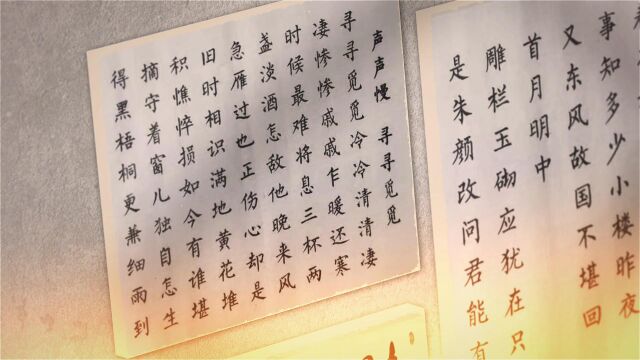 事知多少小楼昨夜
又东风故国不堪回
首月明中
雕栏玉砌应犹在只
是朱颜改问君能有
声声慢 寻寻觅觅
寻寻觅觅冷冷清清凄
凄惨惨戚戚乍暖还寒
时候最难将息三杯两
盏淡酒怎敌他晚来风
急雁过也正伤心却是
旧时相识满地黄花堆
积憔悴损如今有谁堪
摘守着窗儿独自怎生
得黑梧桐更兼细雨到